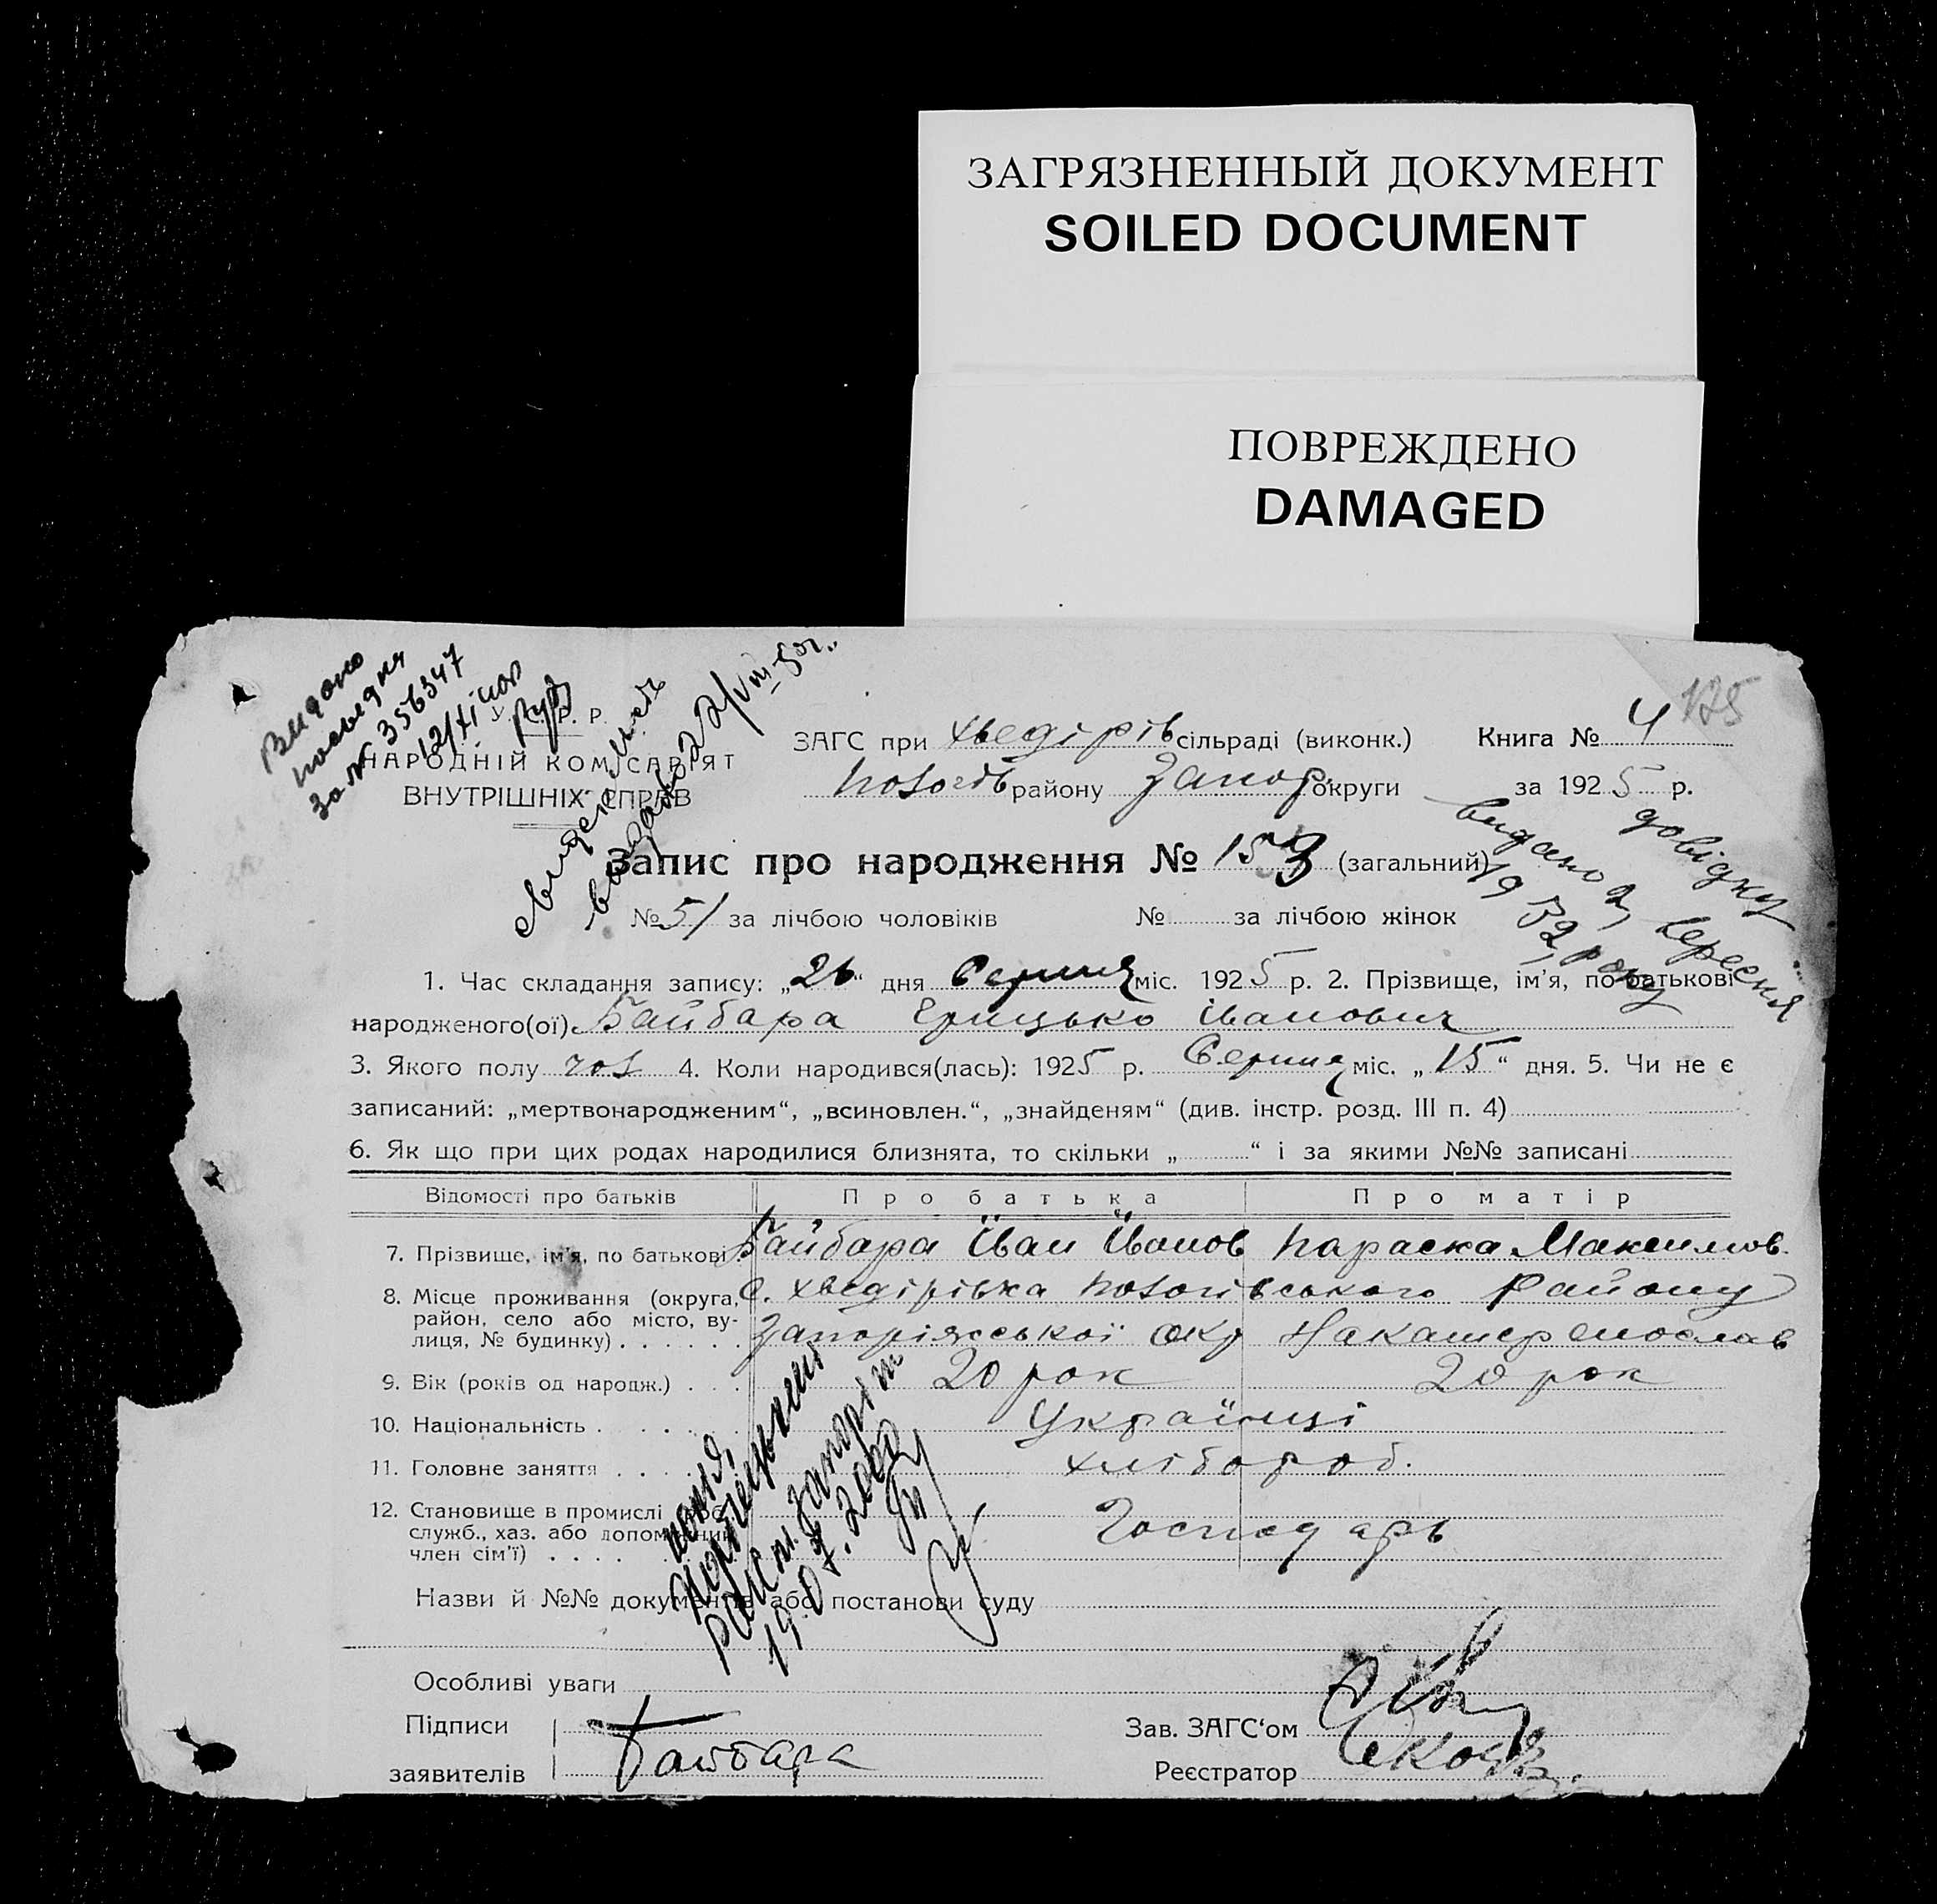 ЗАГРЯЗНЕННЫЙ ДОКУМЕНТ
SOILED DOCUMENT
ПОВРЕЖДЕНО
DAMAGED
125
Видано
посвідкя
за № 356347
12/XI
У. С. Р. Р.
НАРОДНІЙ КОМІСАРІЯТ
ВНУТРІШНІХ СПРАВ
ЗАГС при Хведірів сільраді (виконк.) Книга № 4
Пологів району Запор. округи за 1925 р.
видано довідку
2 вересня
1932 року
Запис про народження № 153 (загальний)
№ 51 за лічбою чоловіків № за лічбою жінок
1. Час складання запису: „26“ дня Серпня міс. 1925 р. 2. Прізвище, ім'я, по батькові
народженого(ої) Байбара Грицько Іванович
3. Якого полу чол 4. Коли народився(лась): 1925 р. Серпня міс. „15“ дня. 5. Чи не є
записаний: „мертвонародженим“, „всиновлен.“, „знайденям“ (див. інстр. розд. III п. 4)
6. Як що при цих родах народилися близнята, то скільки „ “ і за якими №№ записані
Відомості про батьків Про батька Про матір
7. Прізвище, ім'я, по батькові Байбара Іван Іванов Параска Максимов.
8. Місце проживання (округа, район, село або місто, вулиця, № будинку) с. Хведірівка Пологівського Району
Запоріжської окр
9. Вік (років од народж.) 20 рок 20 рок
10. Національність Українці
11. Головне заняття хлібороб.
12. Становище в промислі
служб., хаз. або допоміжний
член сім'ї) Господарь
Назви й №№ документів або постанови суду
19.07.2000
Особливі уваги
Підписи
заявителів Байбара
Зав. ЗАГС'ом
Реєстратор